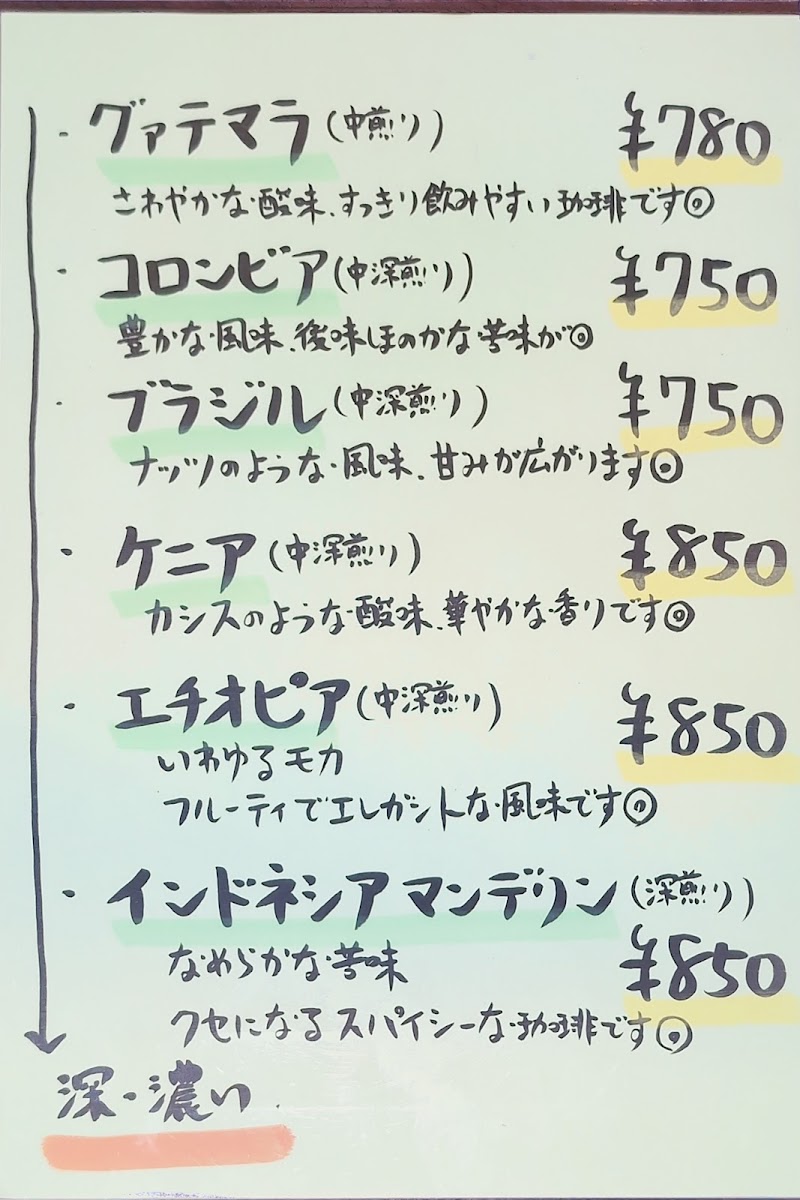 ・グァテマラ(中煎り) ¥780
さわやかな酸味、すっきり飲みやすい珈琲です◎
・コロンビア(中深煎り) ¥750
豊かな風味、後味ほのかな苦味が◎
・ブラジル(中深煎り) ¥750
ナッツのような風味、甘みが広がります◎
・ケニア(中深煎り) ¥850
カシスのような酸味、華やかな香りです◎
・エチオピア(中深煎り) ¥850
いわゆるモカ
フルーティでエレガントな風味です◎
・インドネシア マンデリン(深煎り)
なめらかな苦味 ¥850
クセになるスパイシーな珈琲です◎
深・濃い